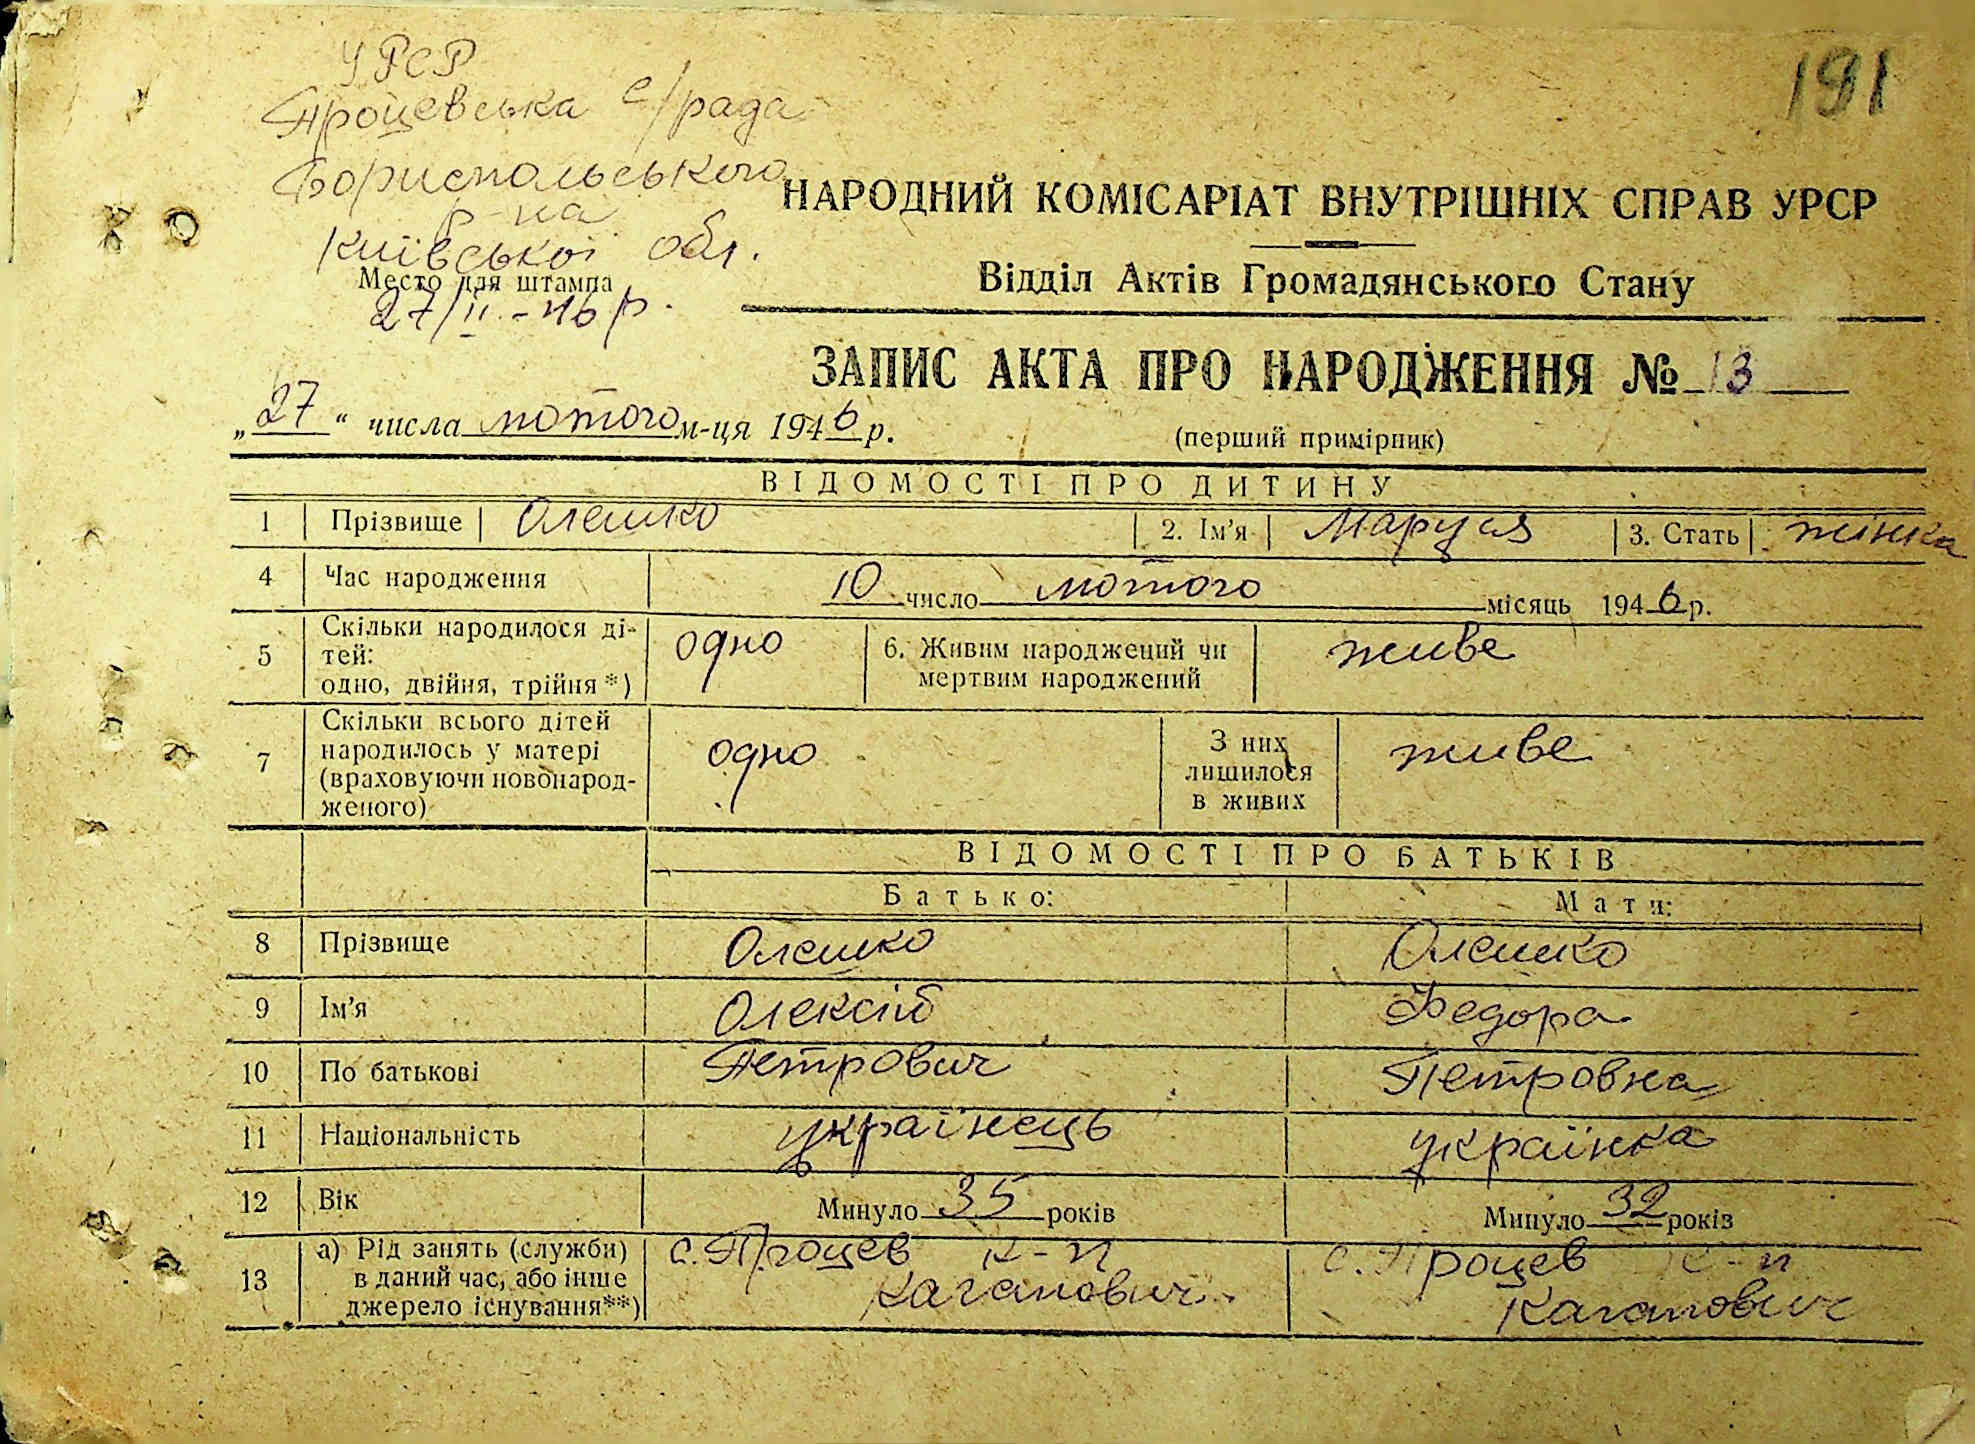 191
УРСР
Процевська с/рада
Бориспольського
р-на
Київської обл.
Место для штампа
27/II.-46 р.
НАРОДНИЙ КОМІСАРІАТ ВНУТРІШНІХ СПРАВ УРСР
Відділ Актів Громадянського Стану
ЗАПИС АКТА ПРО НАРОДЖЕННЯ № 13
„27“ числа лютого м-ця 1946 р.
(перший примірник)
ВІДОМОСТІ ПРО ДИТИНУ
1 Прізвище Олешко 2. Ім'я Маруся 3. Стать жінка
4 Час народження 10 число лютого місяць 1946 р.
5 Скільки народилося ді-
тей:
одно, двійня, трійня*) одно 6. Живим народжений чи
мертвим народжений живе
7 Скільки всього дітей
народилось у матері
(враховуючи новонарод-
женого) одно З них
лишилося
в живих живе
ВІДОМОСТІ ПРО БАТЬКІВ
Батько: Мати:
8 Прізвище Олешко Олешко
9 Ім'я Олексій Федора
10 По батькові Петрович Петровна
11 Національність українець українка
12 Вік Минуло 35 років Минуло 32 років
13 а) Рід занять (служби)
в даний час, або інше
джерело існування**) с. Процев к-п
Каганович с. Процев к-п
Каганович